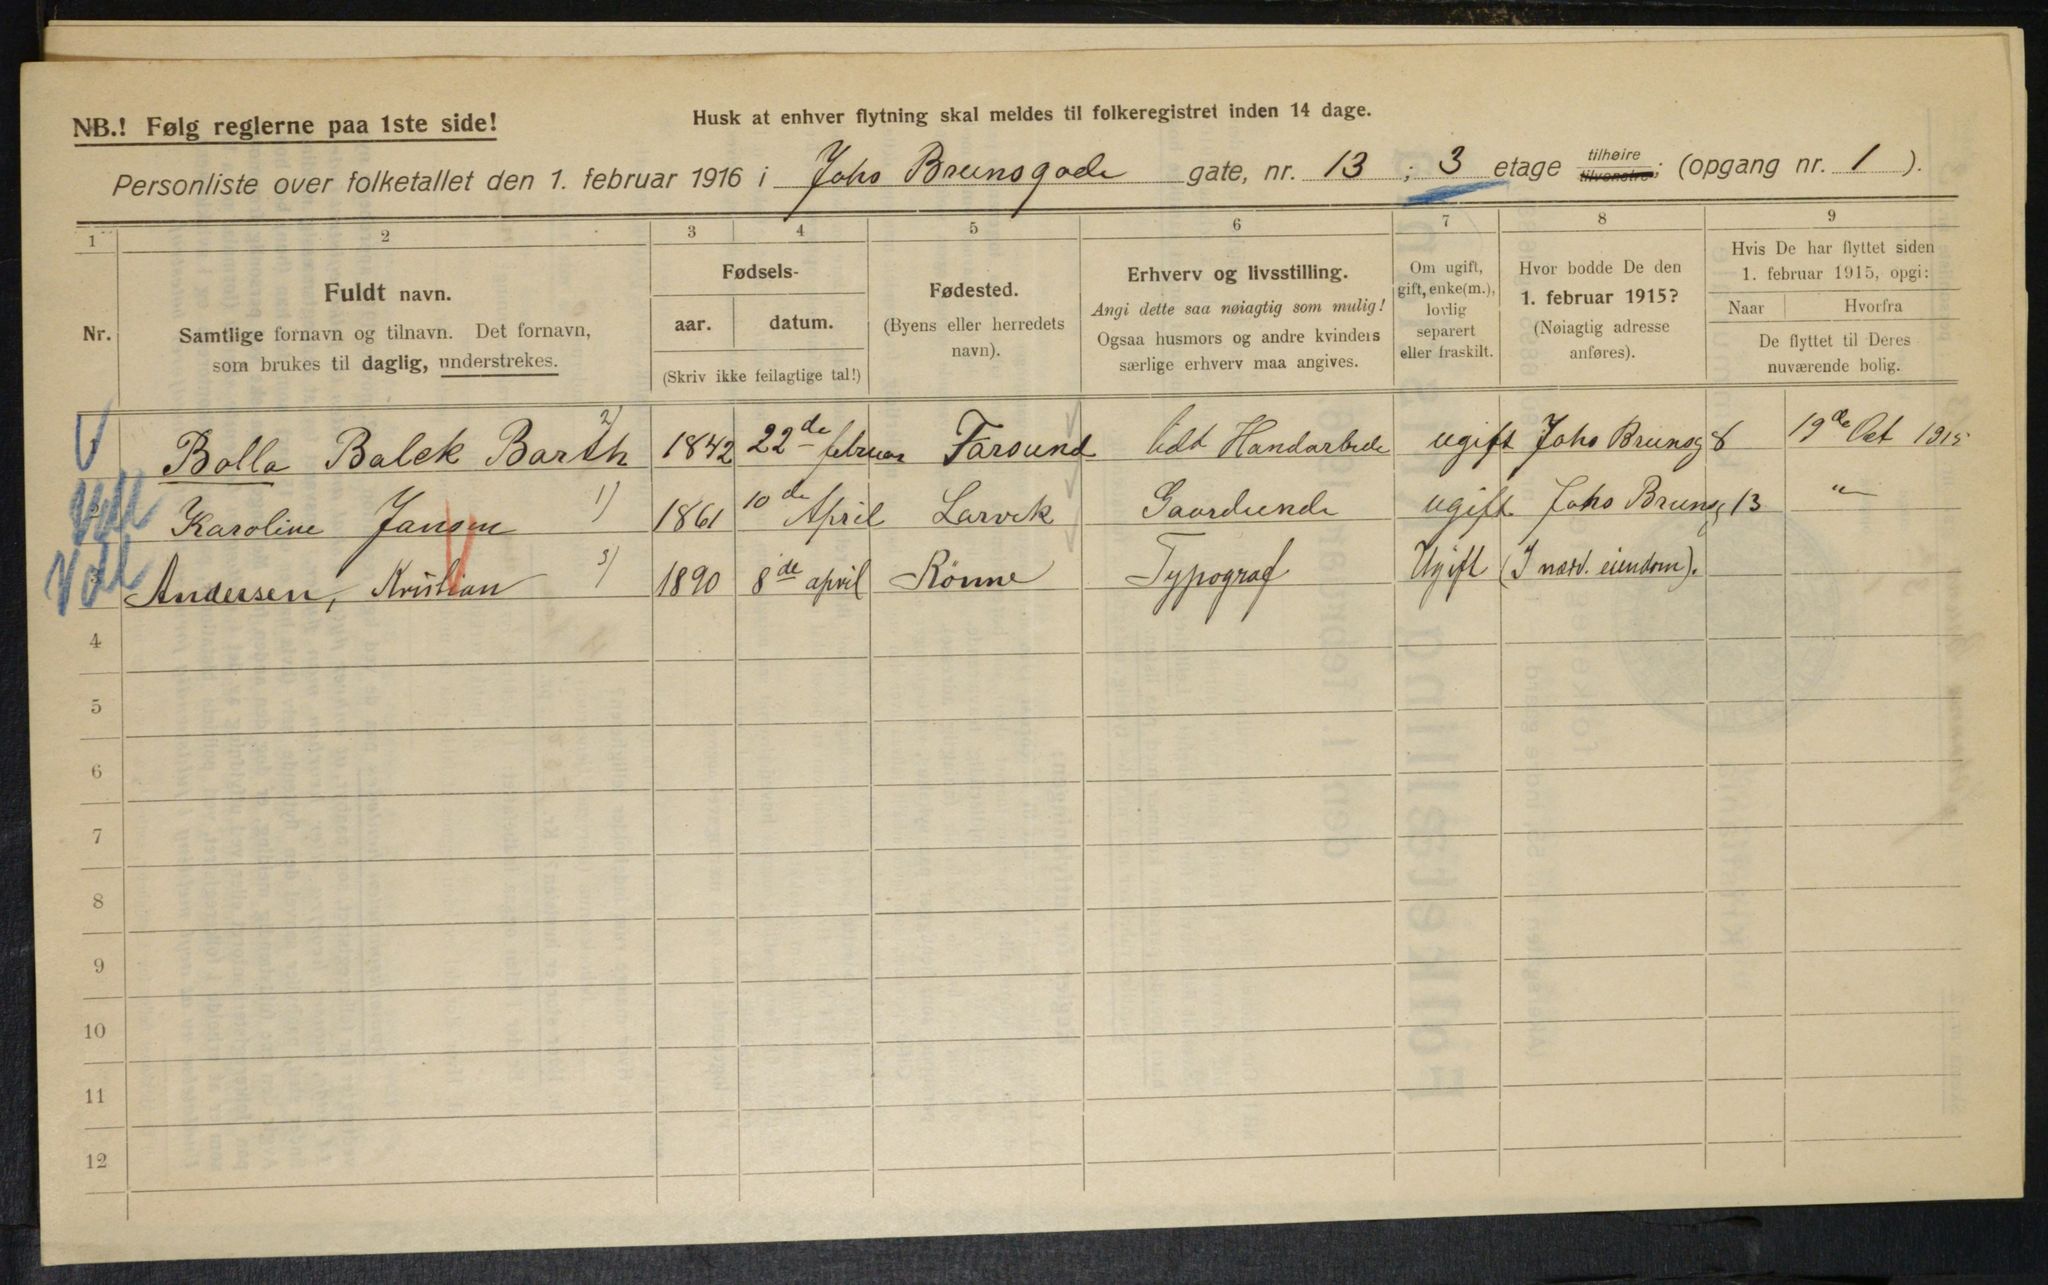 NB.! Følg reglerne paa 1ste side!
Husk at enhver flytning skal meldes til folkeregistret inden 14 dage.
Personliste over folketallet den 1. februar 1916 i Johs Brunsgade gate, nr. 13 ; 3 etage tilhøire tilvenstre; (opgang nr. 1 ).
1 2 3 4 5 6 7 8 9
Nr.
Fuldt navn.
Samtlige fornavn og tilnavn. Det fornavn,
som brukes til daglig, understrekes.
Fødsels-
aar. datum.
(Skriv ikke feilagtige tal!)
Fødested.
(Byens eller herredets
navn).
Erhverv og livsstilling.
Angi dette saa nøiagtig som mulig!
Ogsaa husmors og andre kvinders
særlige erhverv maa angives.
Om ugift,
gift, enke(m.),
lovlig
separert
eller fraskilt.
Hvor bodde De den
1. februar 1915?
(Nøiagtig adresse
anføres).
Hvis De har flyttet siden
1. februar 1915, opgi:
Naar Hvorfra
De flyttet til Deres
nuværende bolig.
Bolla Balck Barth 2) 1842 22de februar Farsund lidt Handarbede ugift Johs Brunsg 8 19de Oct 1915
Karoline Jansen 1) 1861 10de April Larvik ugift Johs Brunsg 13 "
3 Andersen, Kristian 3) 1890 8de april Rönne Typograf Ugift (I nærv. eiendom).
4
5
6
7
8
9
10
11
12